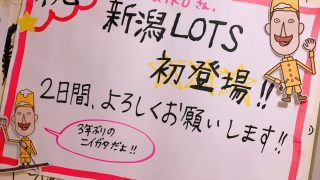 さん。
新潟LOTS
初登場!!
2日間、よろしくお願いします!!
3年ぶりの
ニイガタだよ!!